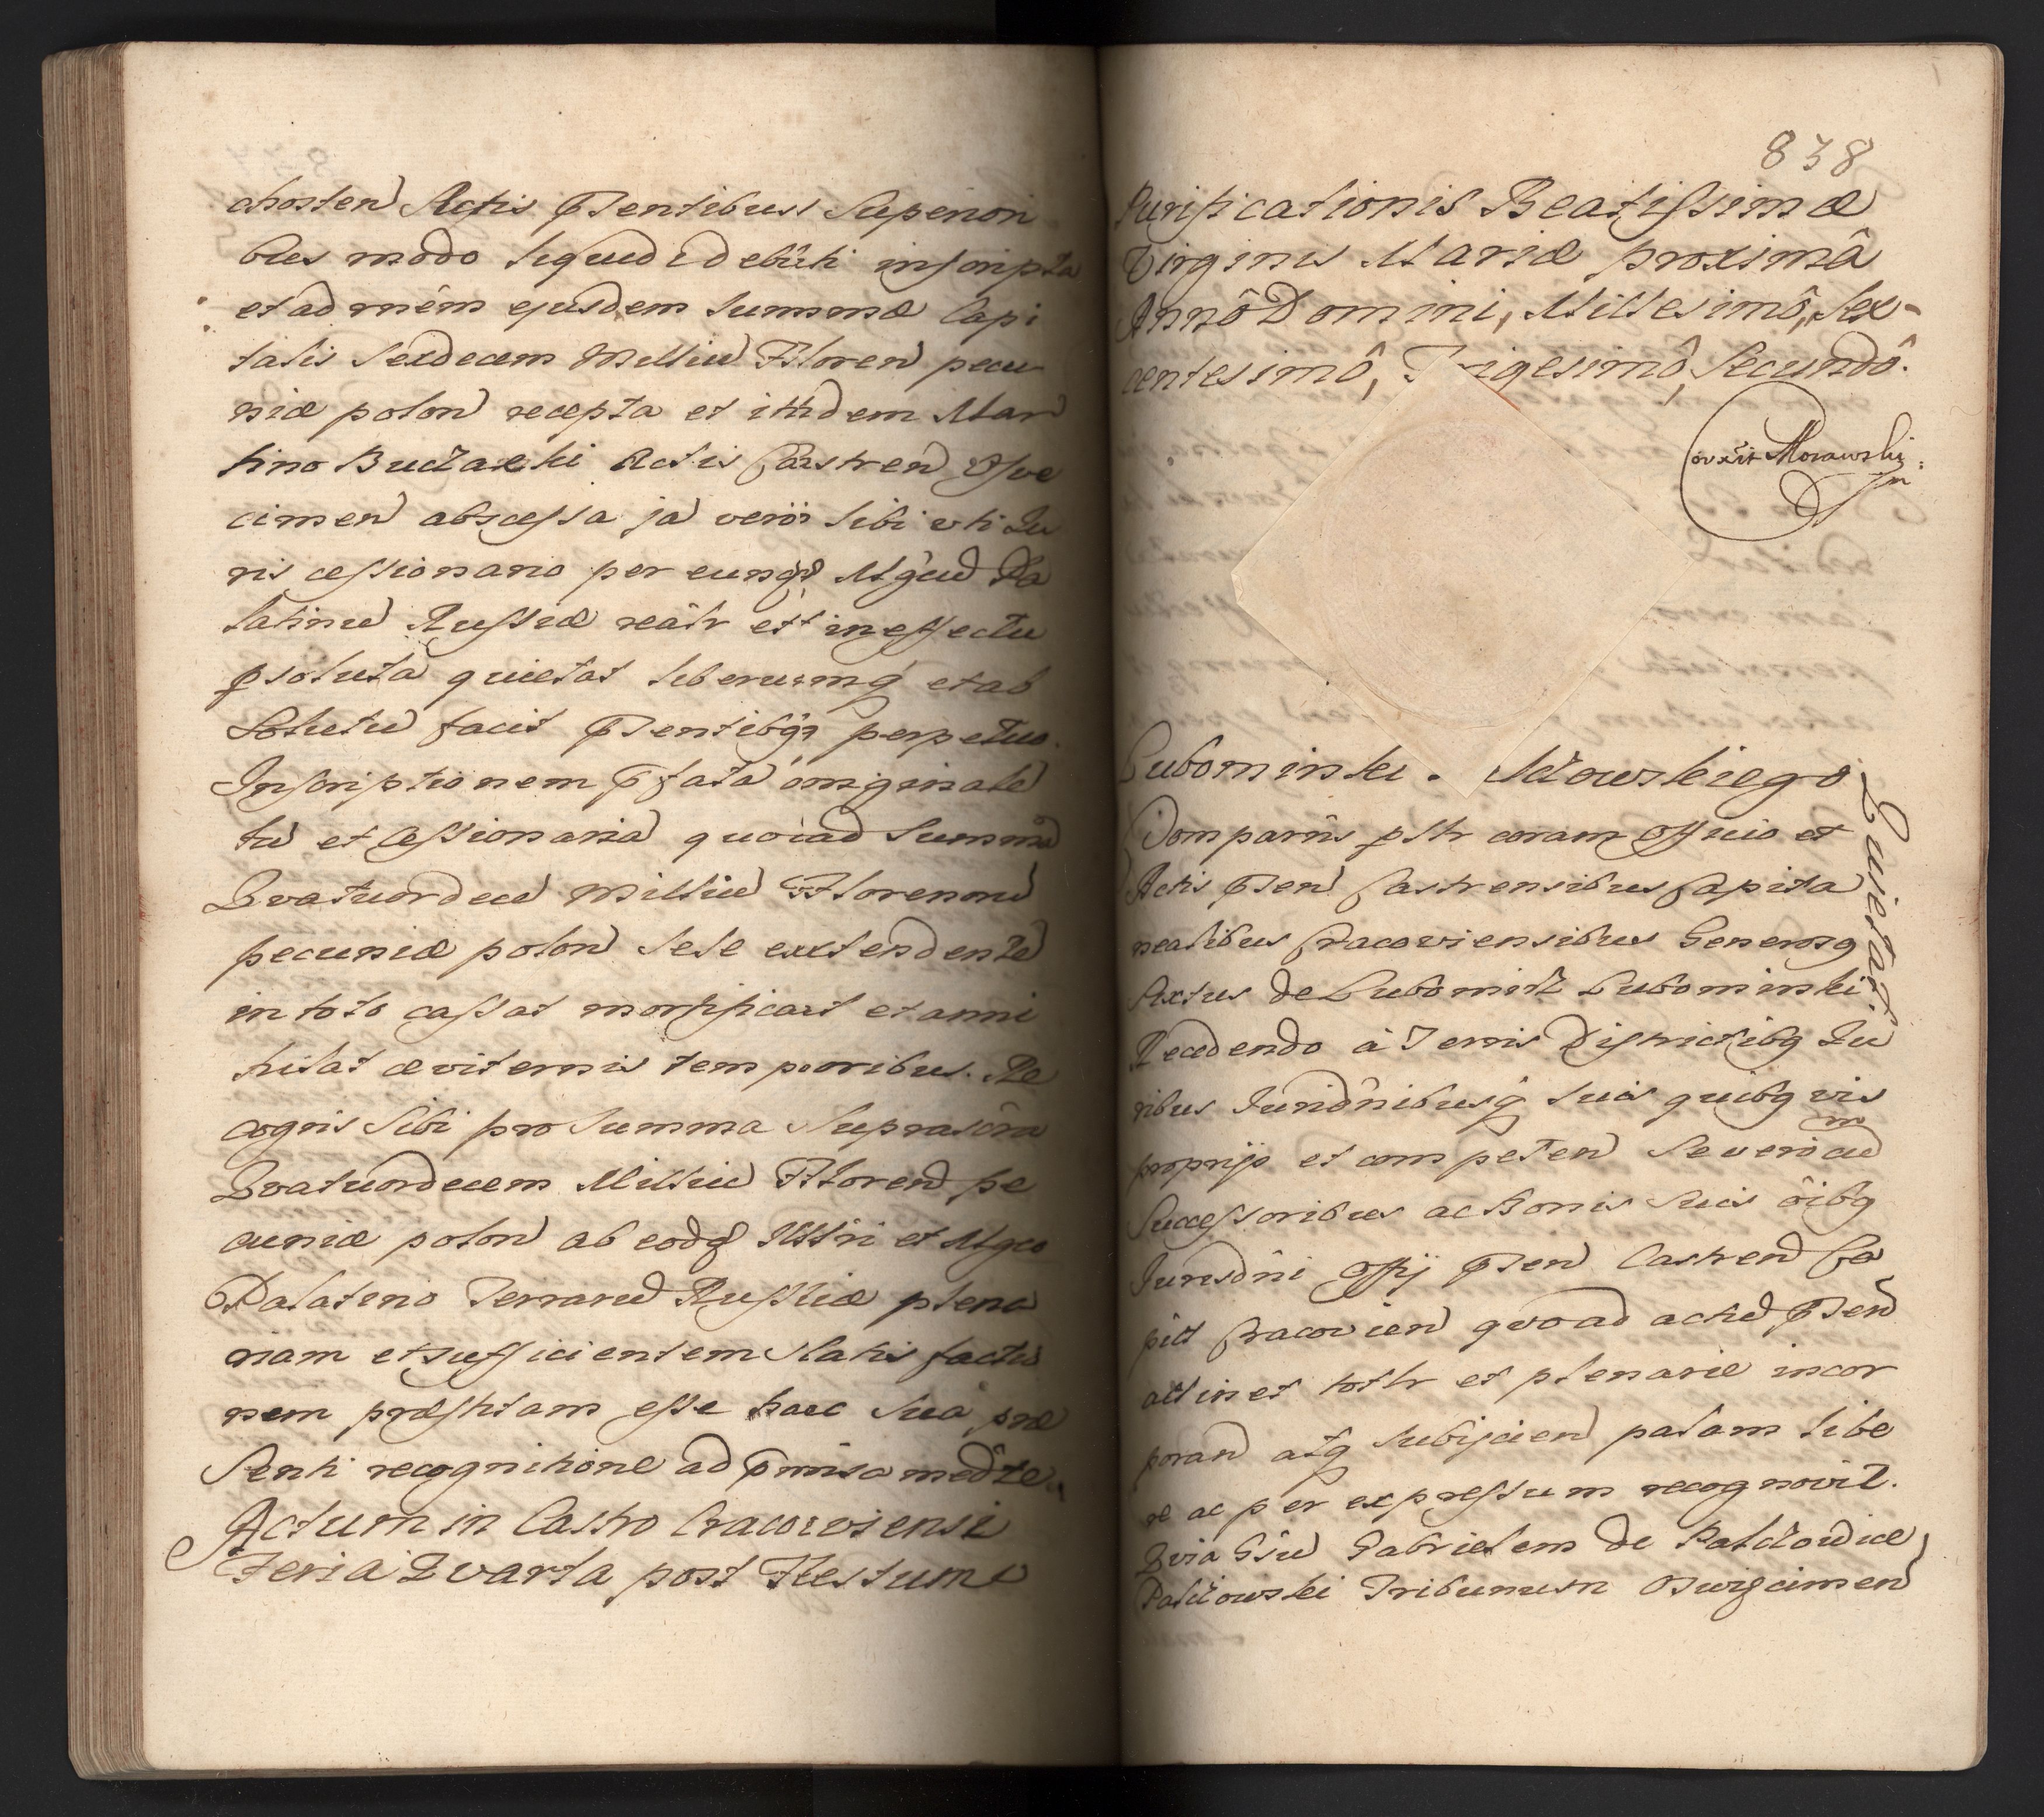 chosten Actis p̃sentibus Superiori
bus modo sequed debiti inscripta
et ad mẽm ejusdem summæ Capi
talis Sexdecem Milliu Floren pecu
niæ polon recepta et ittidem Mar
tino Buczaeki Actis Castren Osve
cimen abscessa ja vero sibi uti Ju
ris cessionario per eunqd Mgcu Pa
latinu Russiæ reãlr ett in effectu
psoluta quietat liberumq et ab
Solutu facit p̃sentibq perpetuo.
Inscriptionem p̃fata originale
tu et Cessionaria quoad Summa
Qvatuordece Milliu Florenoru
pecuniæ polon sese extendente
in toto cassat mortificat et anni
hilat æviternis temporibus. Re
cognis sibi pro Summa Suprascra
Qvatuordecem Milliu Floren pe
cuniæ polon ab eodq Illri et Mgco
Palatino Terraru Russiæ plena
riam et sufficientem Satis factio
nem præstitam esse hacc sua præ
senti recognitione ad p̃missa medte.
Actum in Castro Cracoviensi
Feria Qvarta post Festum
838
Purificationis Beatissimæ
Virginis Mariæ proximâ
Annô Domini, Millesimô, Sex-
centesimô, Trigesimô, Secundô.
Corxit Morawski
mp
Lubominski . Idowskiego
Quietat.
Comparñs pslr coram Officio et
Actis p̃sen Castrensibus Capita
nealibus Cracoviensibus Generosq
Sixtus de Lubomirz Lubominski
Recedendo à Terris Districtibq Ju
ribus Jurisdnibusq suis quibqvis
proprijs et competen Se verocu
m
Successoribus ac Bonis suis õibq
Jurisdni Offij p̃sen Castren Ca
pitt Cracovien qvoad actu p̃sen
attinet totlr et plenarie incor
poran atq subijcien palam libe
re ac per expressum recognovit.
Qvia Gsu Gabrielem de Palczowice
Palczowski Tribunum Oswięcimen